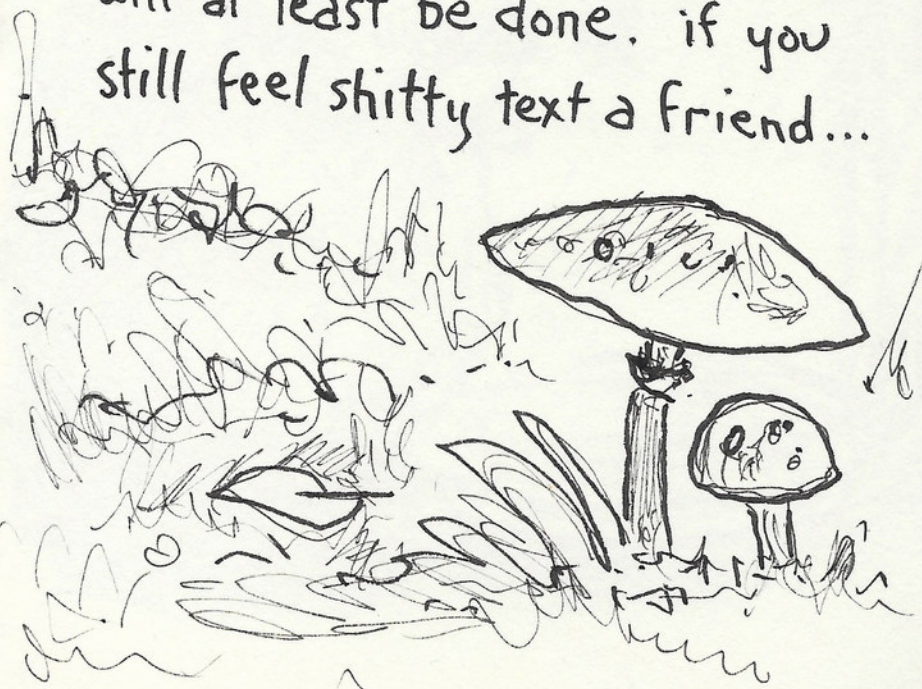 at least be done. if you
still feel shitty text a friend...